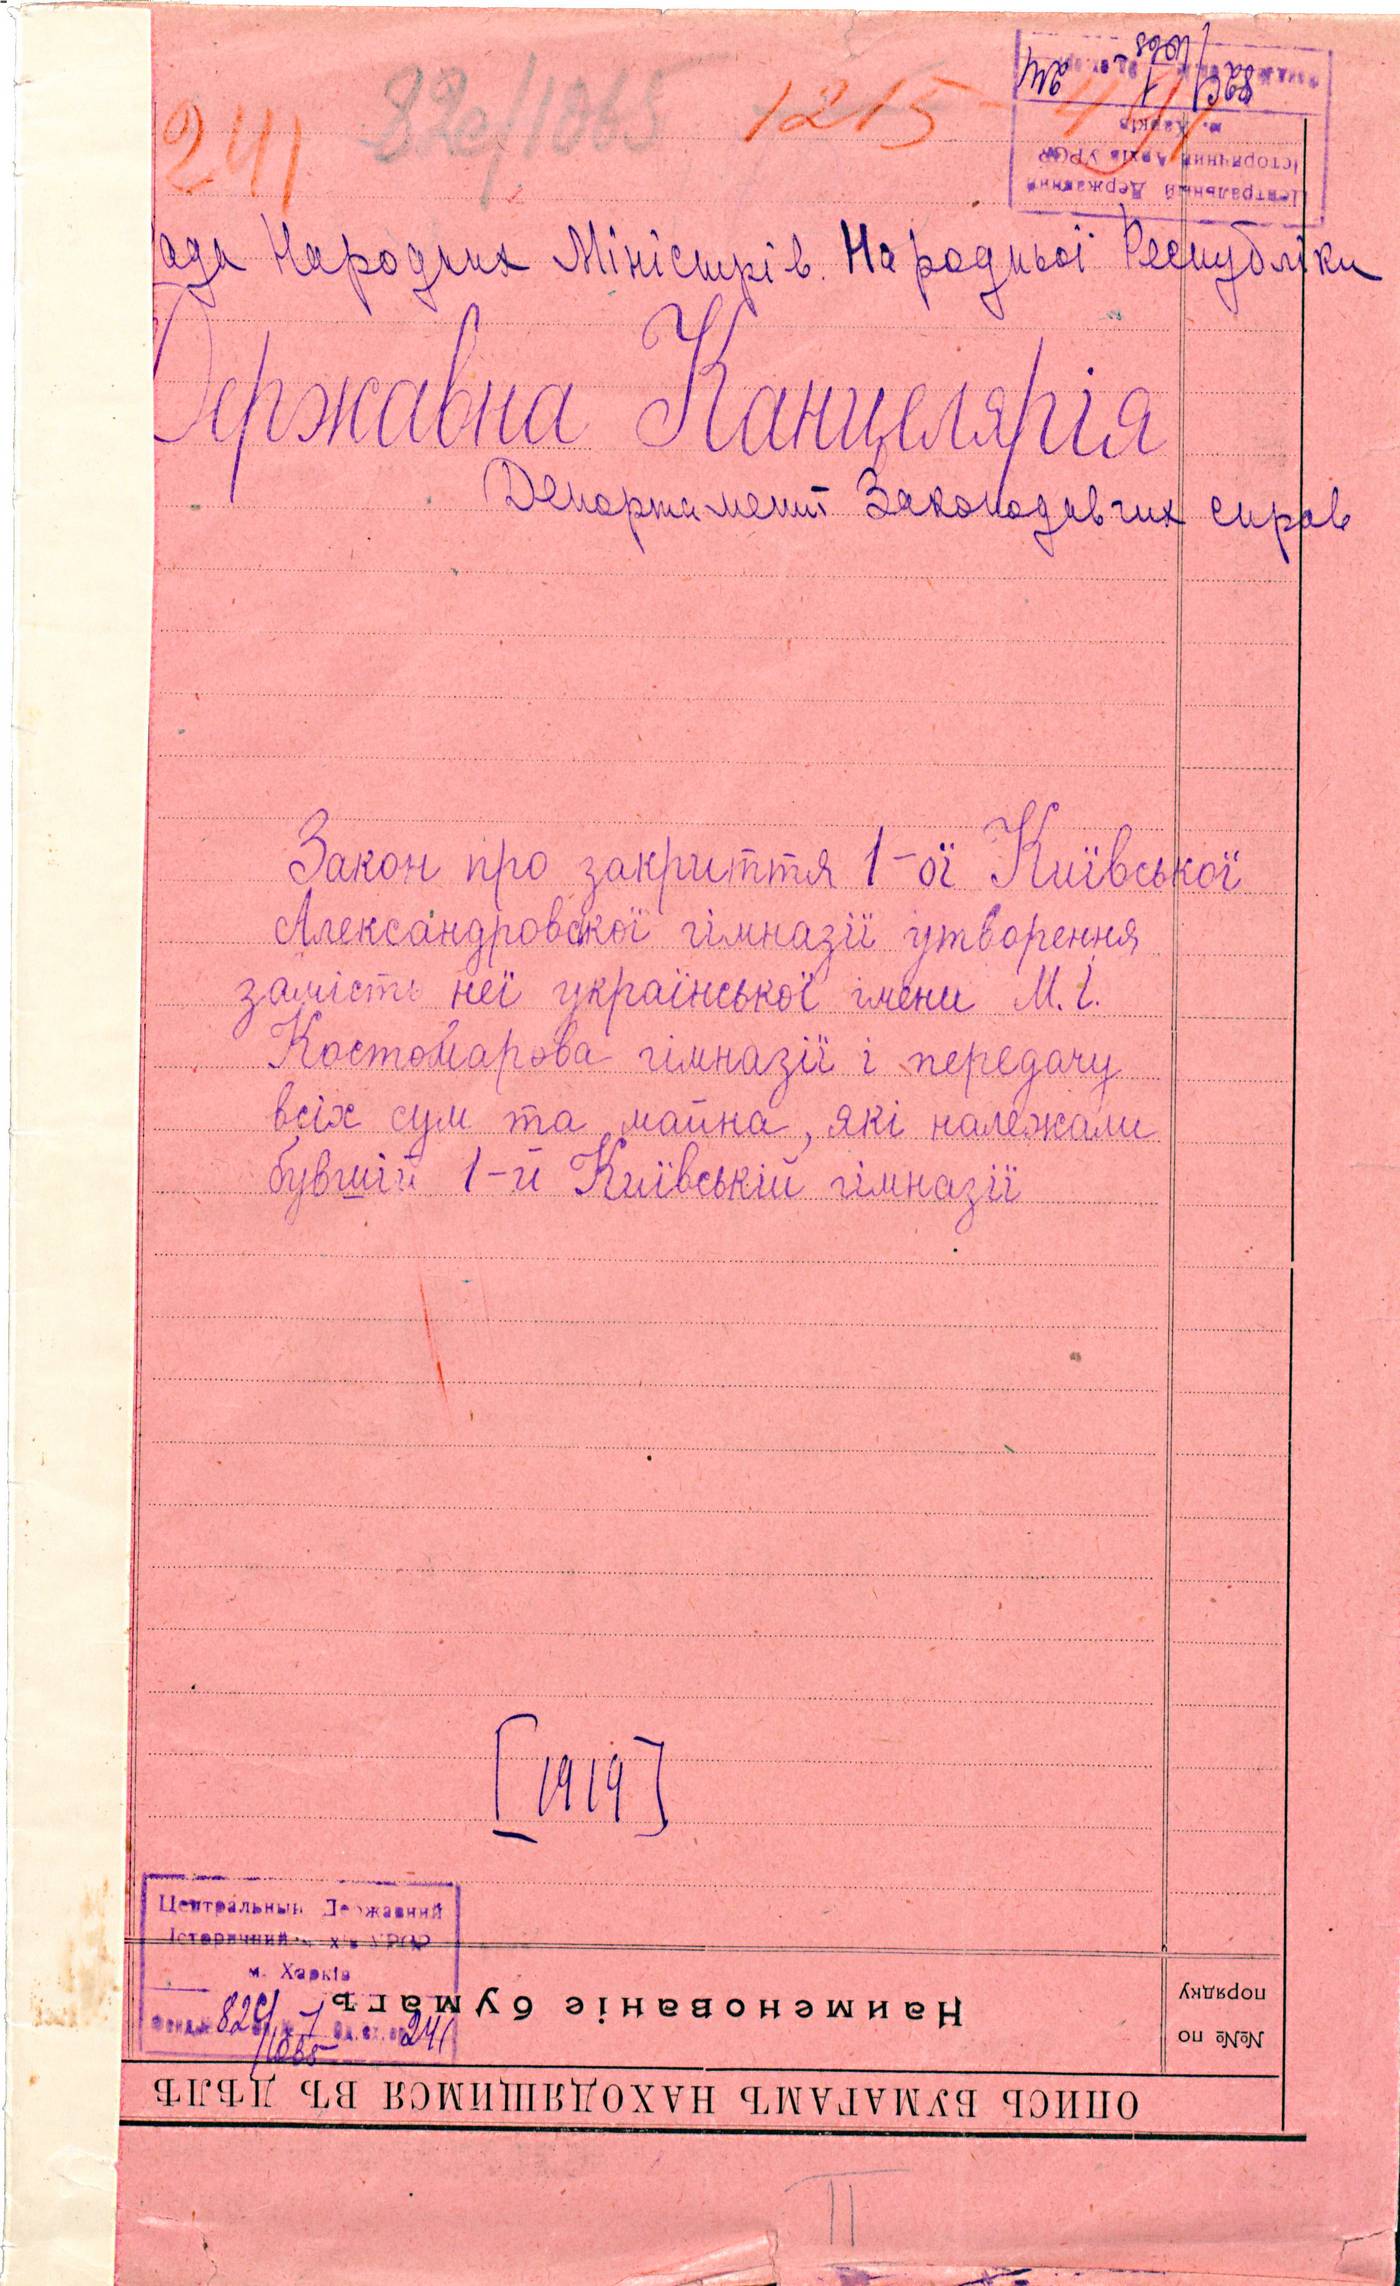 241 82с/1065 1215-
Центральный Державний
Історичний Архів УРСР
м. Харків
82с/1065 1 241
ада Народних Міністрів. Народньої Республіки
Державна Канцелярія
Департамент Законодавчих справ
Закон про закриття 1-ої Київської
Александровської гімназії утворення
замість неї української імени М. І.
Костомарова гімназії і передачу
всіх сум та майна, які належали
бувшій 1-й Київській гімназії
[1919]
Центральный Державний
Історичний УРСР
м. Харків
Фонд № 82с/1065 1 Од. зб. 241
№№ по порядку
Наименованіе бумагъ
ОПИСЬ БУМАГАМЪ НАХОДЯЩИМСЯ ВЪ ДѢЛѢ
II